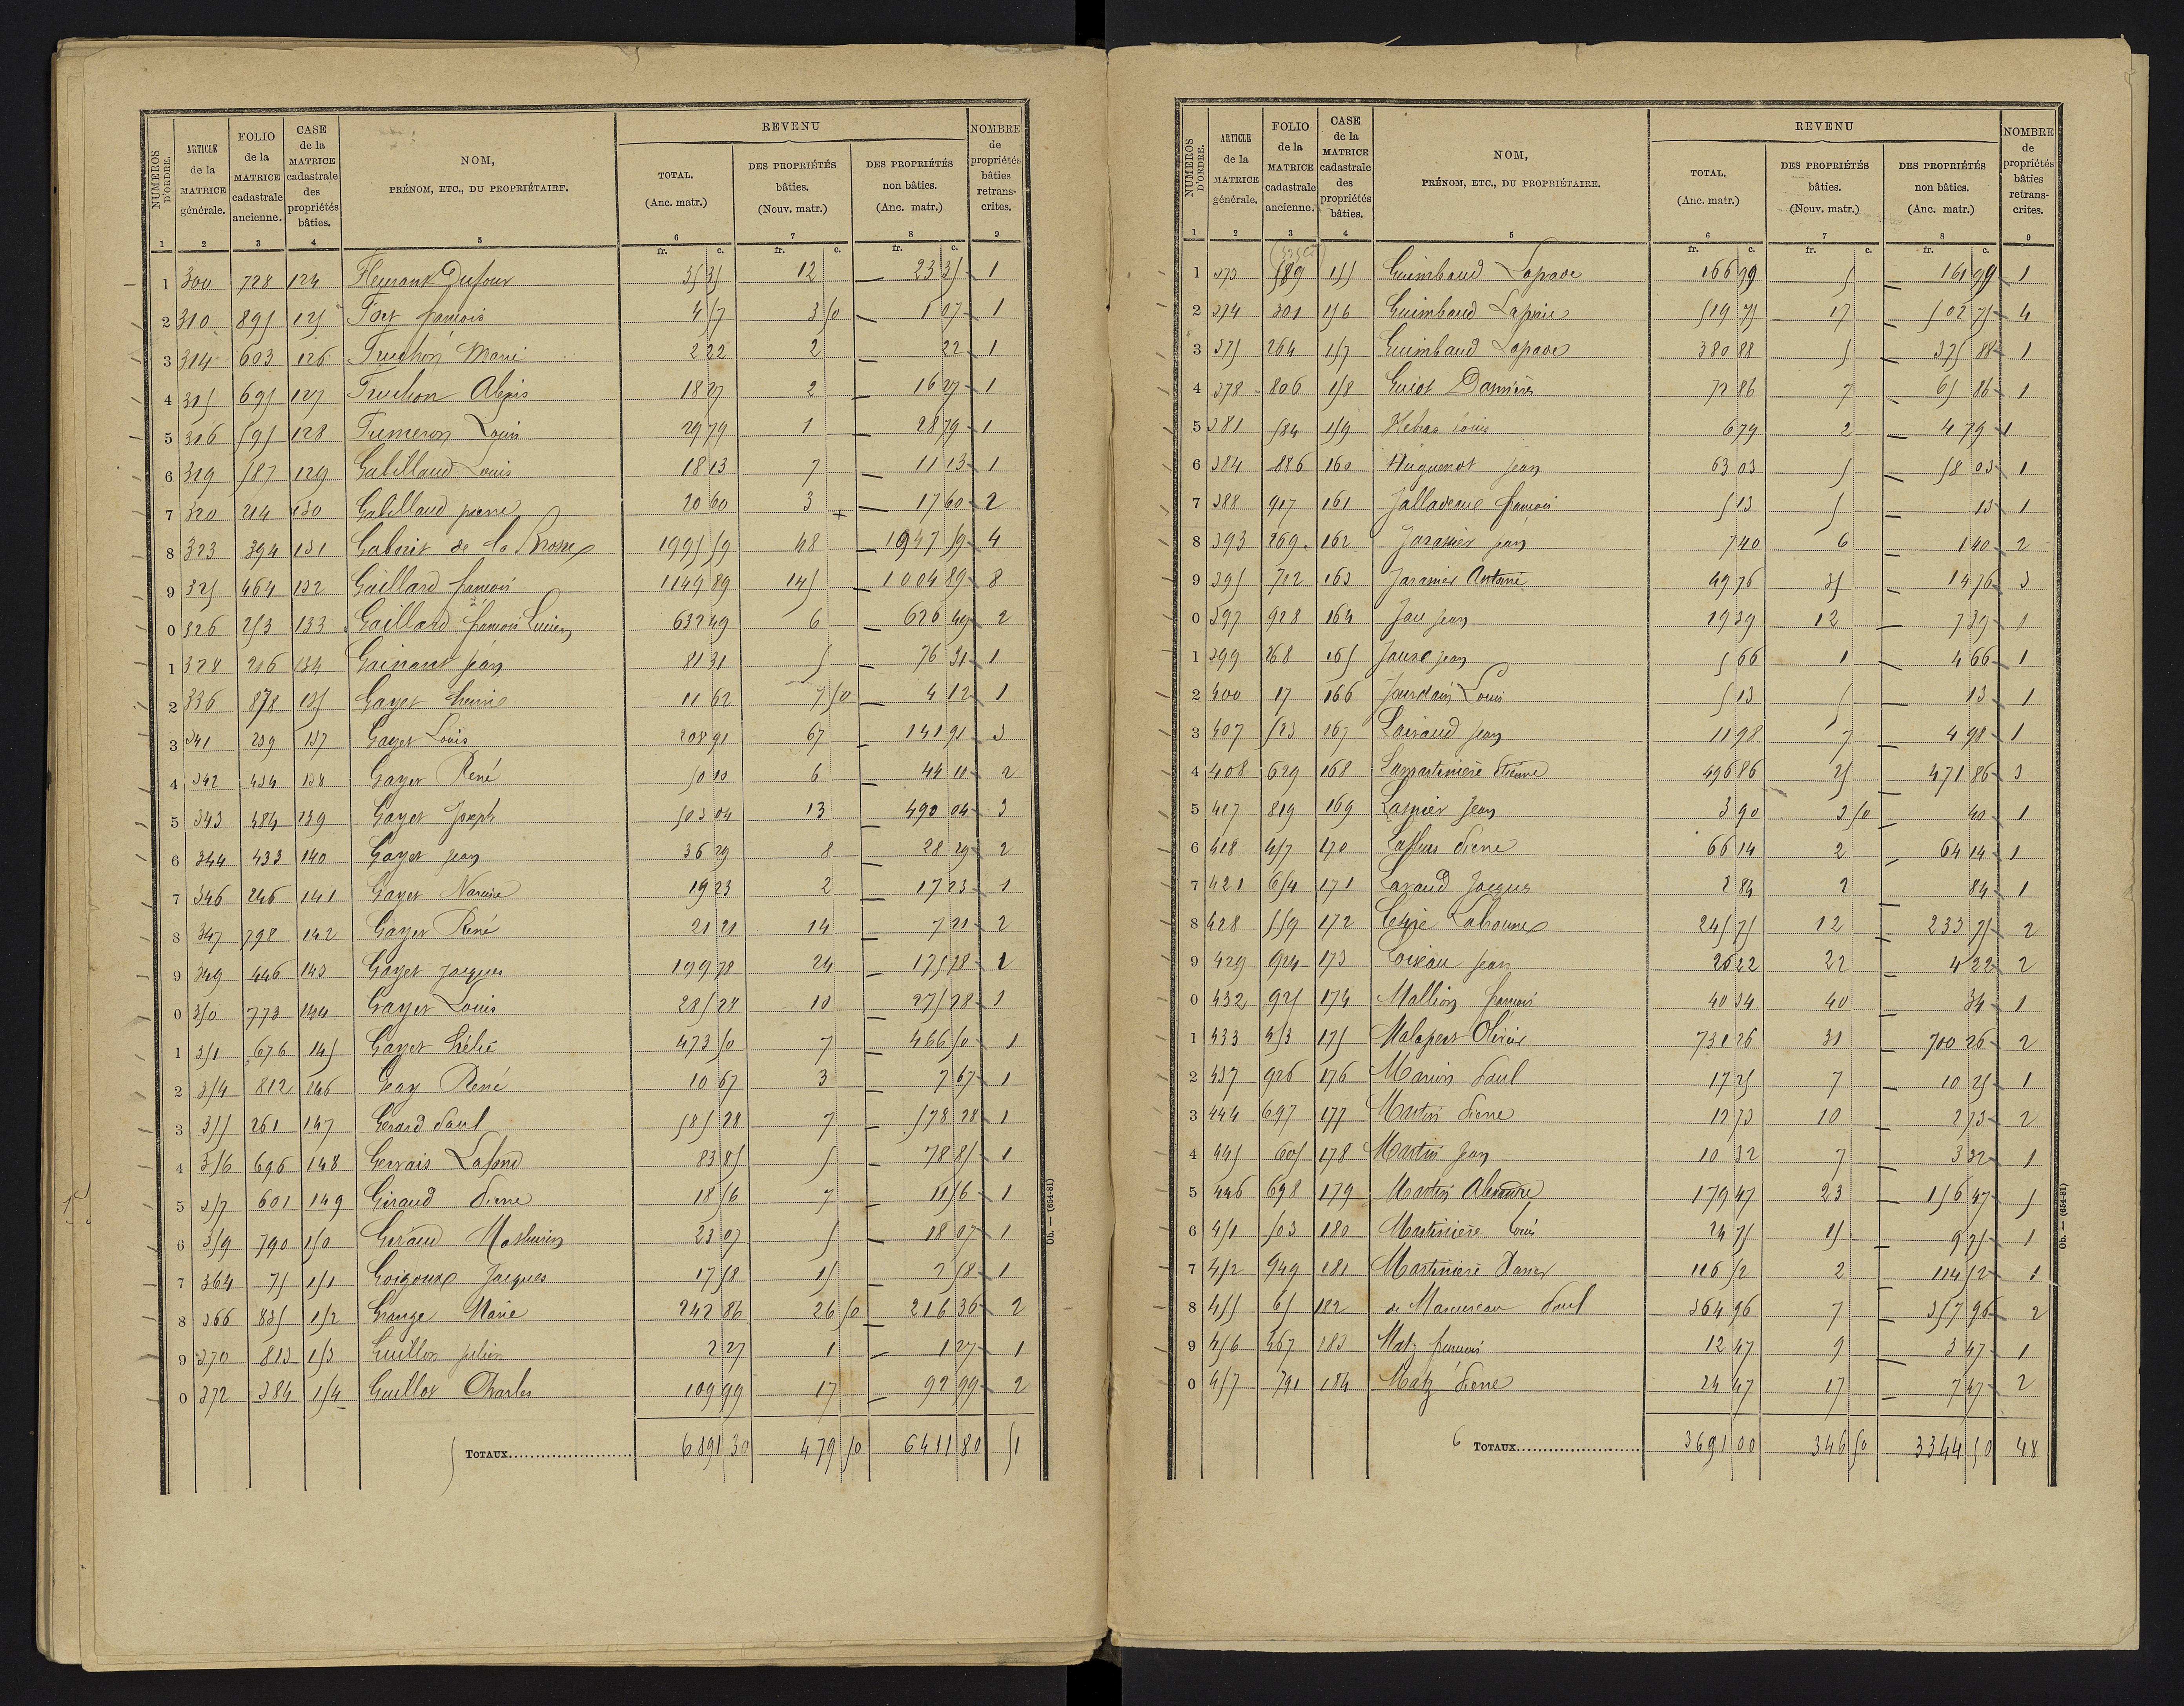 NUMÉROS D'ORDRE. | ARTICLE de la MATRICE générale. | FOLIO de la MATRICE cadastrale ancienne. | CASE de la MATRICE cadastrale des propriétés bâties. | NOM, PRÉNOM, ETC., DU PROPRIÉTAIRE. | REVENU TOTAL. (Anc. matr.) | DES PROPRIÉTÉS bâties. (Nouv. matr.) | DES PROPRIÉTÉS non bâties. (Anc. matr.) | NOMBRE de propriétés bâties retranscrites.
1 | 2 | 3 | 4 | 5 | 6 | 7 | 8 | 9
fr. c. | fr. c. | fr. c.
1 | 300 | 728 | 124 | Dufour | 35 35 | 12 | 23 35 | 1
2 | 310 | 895 | 125 | françois | 4 57 | 3 50 | 1 07 | 1
3 | 314 | 603 | 126 | Fruchon Marie | 2 22 | 2 | 22 | 1
4 | 315 | 695 | 127 | Fruchon Alexis | 18 27 | 2 | 16 27 | 1
5 | 316 | 595 | 128 | Fumeron Louis | 29 79 | 1 | 28 79 | 1
6 | 319 | 587 | 129 | Gabillaud Louis | 18 13 | 7 | 11 13 | 1
7 | 320 | 214 | 130 | Gabillaud pierre | 20 60 | 3 | 17 60 | 2
8 | 323 | 394 | 131 | Gaborit de la Brosse | 1995 59 | 48 | 1947 59 | 4
9 | 325 | 464 | 132 | Gaillard françois | 1149 89 | 145 | 1004 89 | 8
0 | 326 | 253 | 133 | Gaillard françois Lucien | 632 49 | 6 | 626 49 | 2
1 | 328 | 216 | 134 | Gainant jean | 81 31 | 5 | 76 31 | 1
2 | 336 | 878 | 135 | Gayet | 11 62 | 7 50 | 4 12 | 1
3 | 341 | 239 | 137 | Gayet Louis | 208 91 | 67 | 141 91 | 3
4 | 342 | 434 | 138 | Gayet René | 50 11 | 6 | 44 11 | 2
5 | 343 | 484 | 139 | Gayet Joseph | 503 04 | 13 | 490 04 | 3
6 | 344 | 433 | 140 | Gayet jean | 36 29 | 8 | 28 29 | 2
7 | 346 | 246 | 141 | Gayet Narcisse | 19 23 | 2 | 17 23 | 1
8 | 347 | 798 | 142 | Gayet René | 21 21 | 14 | 7 21 | 2
9 | 349 | 446 | 143 | Gayet jacques | 199 78 | 24 | 175 78 | 1
0 | 350 | 773 | 144 | Gayet Louis | 285 28 | 10 | 275 28 | 1
1 | 351 | 676 | 145 | Gayet Hélie | 473 50 | 7 | 466 50 | 1
2 | 354 | 812 | 146 | Geay René | 10 67 | 3 | 7 67 | 1
3 | 355 | 261 | 147 | Gérard Paul | 585 28 | 7 | 578 28 | 1
4 | 356 | 696 | 148 | Gervais Lafond | 83 85 | 5 | 78 85 | 1
5 | 357 | 601 | 149 | Giraud Pierre | 18 56 | 7 | 11 56 | 1
6 | 359 | 790 | 150 | Giraud Mathurin | 23 07 | 5 | 18 07 | 1
7 | 364 | 75 | 151 | Goigoux Jacques | 17 58 | 15 | 2 58 | 1
8 | 366 | 835 | 152 | Grange Marie | 242 86 | 26 50 | 216 36 | 2
9 | 370 | 813 | 153 | Guillon julien | 2 27 | 1 | 1 27 | 1
0 | 372 | 384 | 154 | Guillot Charles | 109 99 | 17 | 92 99 | 2
5 TOTAUX | 6891 30 | 479 50 | 6411 80 | 51
Ob. — (654-81)
NUMÉROS D'ORDRE. | ARTICLE de la MATRICE générale. | FOLIO de la MATRICE cadastrale ancienne. | CASE de la MATRICE cadastrale des propriétés bâties. | NOM, PRÉNOM, ETC., DU PROPRIÉTAIRE. | REVENU TOTAL. (Anc. matr.) | DES PROPRIÉTÉS bâties. (Nouv. matr.) | DES PROPRIÉTÉS non bâties. (Anc. matr.) | NOMBRE de propriétés bâties retranscrites.
1 | 2 | 3 | 4 | 5 | 6 | 7 | 8 | 9
fr. c. | fr. c. | fr. c.
1 | 373 | 589 | 155 | Guimbaud Lapave | 166 99 | 5 | 161 99 | 1
2 | 374 | 301 | 156 | Guimbaud | 519 75 | 17 | 502 75 | 4
3 | 375 | 264 | 157 | Guimbaud Lapave | 380 88 | 5 | 375 88 | 1
4 | 378 | 806 | 158 | Guiot | 72 86 | 7 | 65 86 | 1
5 | 381 | 584 | 159 | Hebras Louis | 6 79 | 2 | 4 79 | 1
6 | 384 | 886 | 160 | Huguenot jean | 63 03 | 5 | 58 03 | 1
7 | 388 | 917 | 161 | Jalladeaux françois | 5 13 | 5 | 13 | 1
8 | 393 | 269 | 162 | Jaranier jean | 7 40 | 6 | 1 40 | 2
9 | 395 | 712 | 163 | Jaranier Antoine | 49 76 | 35 | 14 76 | 3
0 | 397 | 928 | 164 | jean | 19 39 | 12 | 7 39 | 1
1 | 399 | 268 | 165 | jean | 5 66 | 1 | 4 66 | 1
2 | 400 | 17 | 166 | Jourdain Louis | 5 13 | 5 | 13 | 1
3 | 407 | 523 | 167 | Lairaud Jean | 11 98 | 7 | 4 98 | 1
4 | 408 | 629 | 168 | Lamartinière Etienne | 496 86 | 25 | 471 86 | 3
5 | 417 | 819 | 169 | Lasnier Jean | 3 90 | 3 50 | 40 | 1
6 | 418 | 457 | 170 | Pierre | 66 14 | 2 | 64 14 | 1
7 | 421 | 654 | 171 | Lavaud Jacques | 2 84 | 2 | 84 | 1
8 | 428 | 559 | 172 | | 245 75 | 12 | 233 75 | 2
9 | 429 | 924 | 173 | Loizeau jean | 26 22 | 22 | 4 22 | 2
0 | 432 | 925 | 174 | Mallion françois | 40 34 | 40 | 34 | 1
1 | 433 | 453 | 175 | Malapert Olivier | 731 26 | 31 | 700 26 | 2
2 | 437 | 926 | 176 | Marin Paul | 17 25 | 7 | 10 25 | 1
3 | 444 | 697 | 177 | Martin Pierre | 12 73 | 10 | 2 73 | 2
4 | 445 | 605 | 178 | Martin Jean | 10 32 | 7 | 3 32 | 1
5 | 446 | 698 | 179 | Martin Alexandre | 179 47 | 23 | 156 47 | 5
6 | 451 | 503 | 180 | Martinière Louis | 24 75 | 15 | 9 75 | 1
7 | 452 | 949 | 181 | Martinière | 116 52 | 2 | 114 52 | 1
8 | 455 | 65 | 182 | de Marcureau Paul | 364 96 | 7 | 357 96 | 2
9 | 456 | 467 | 183 | Matz françois | 12 47 | 9 | 3 47 | 1
0 | 457 | 791 | 184 | Matz Pierre | 24 47 | 17 | 7 47 | 2
6 TOTAUX | 3691 00 | 346 50 | 3344 50 | 48
Ob. — (654-81)